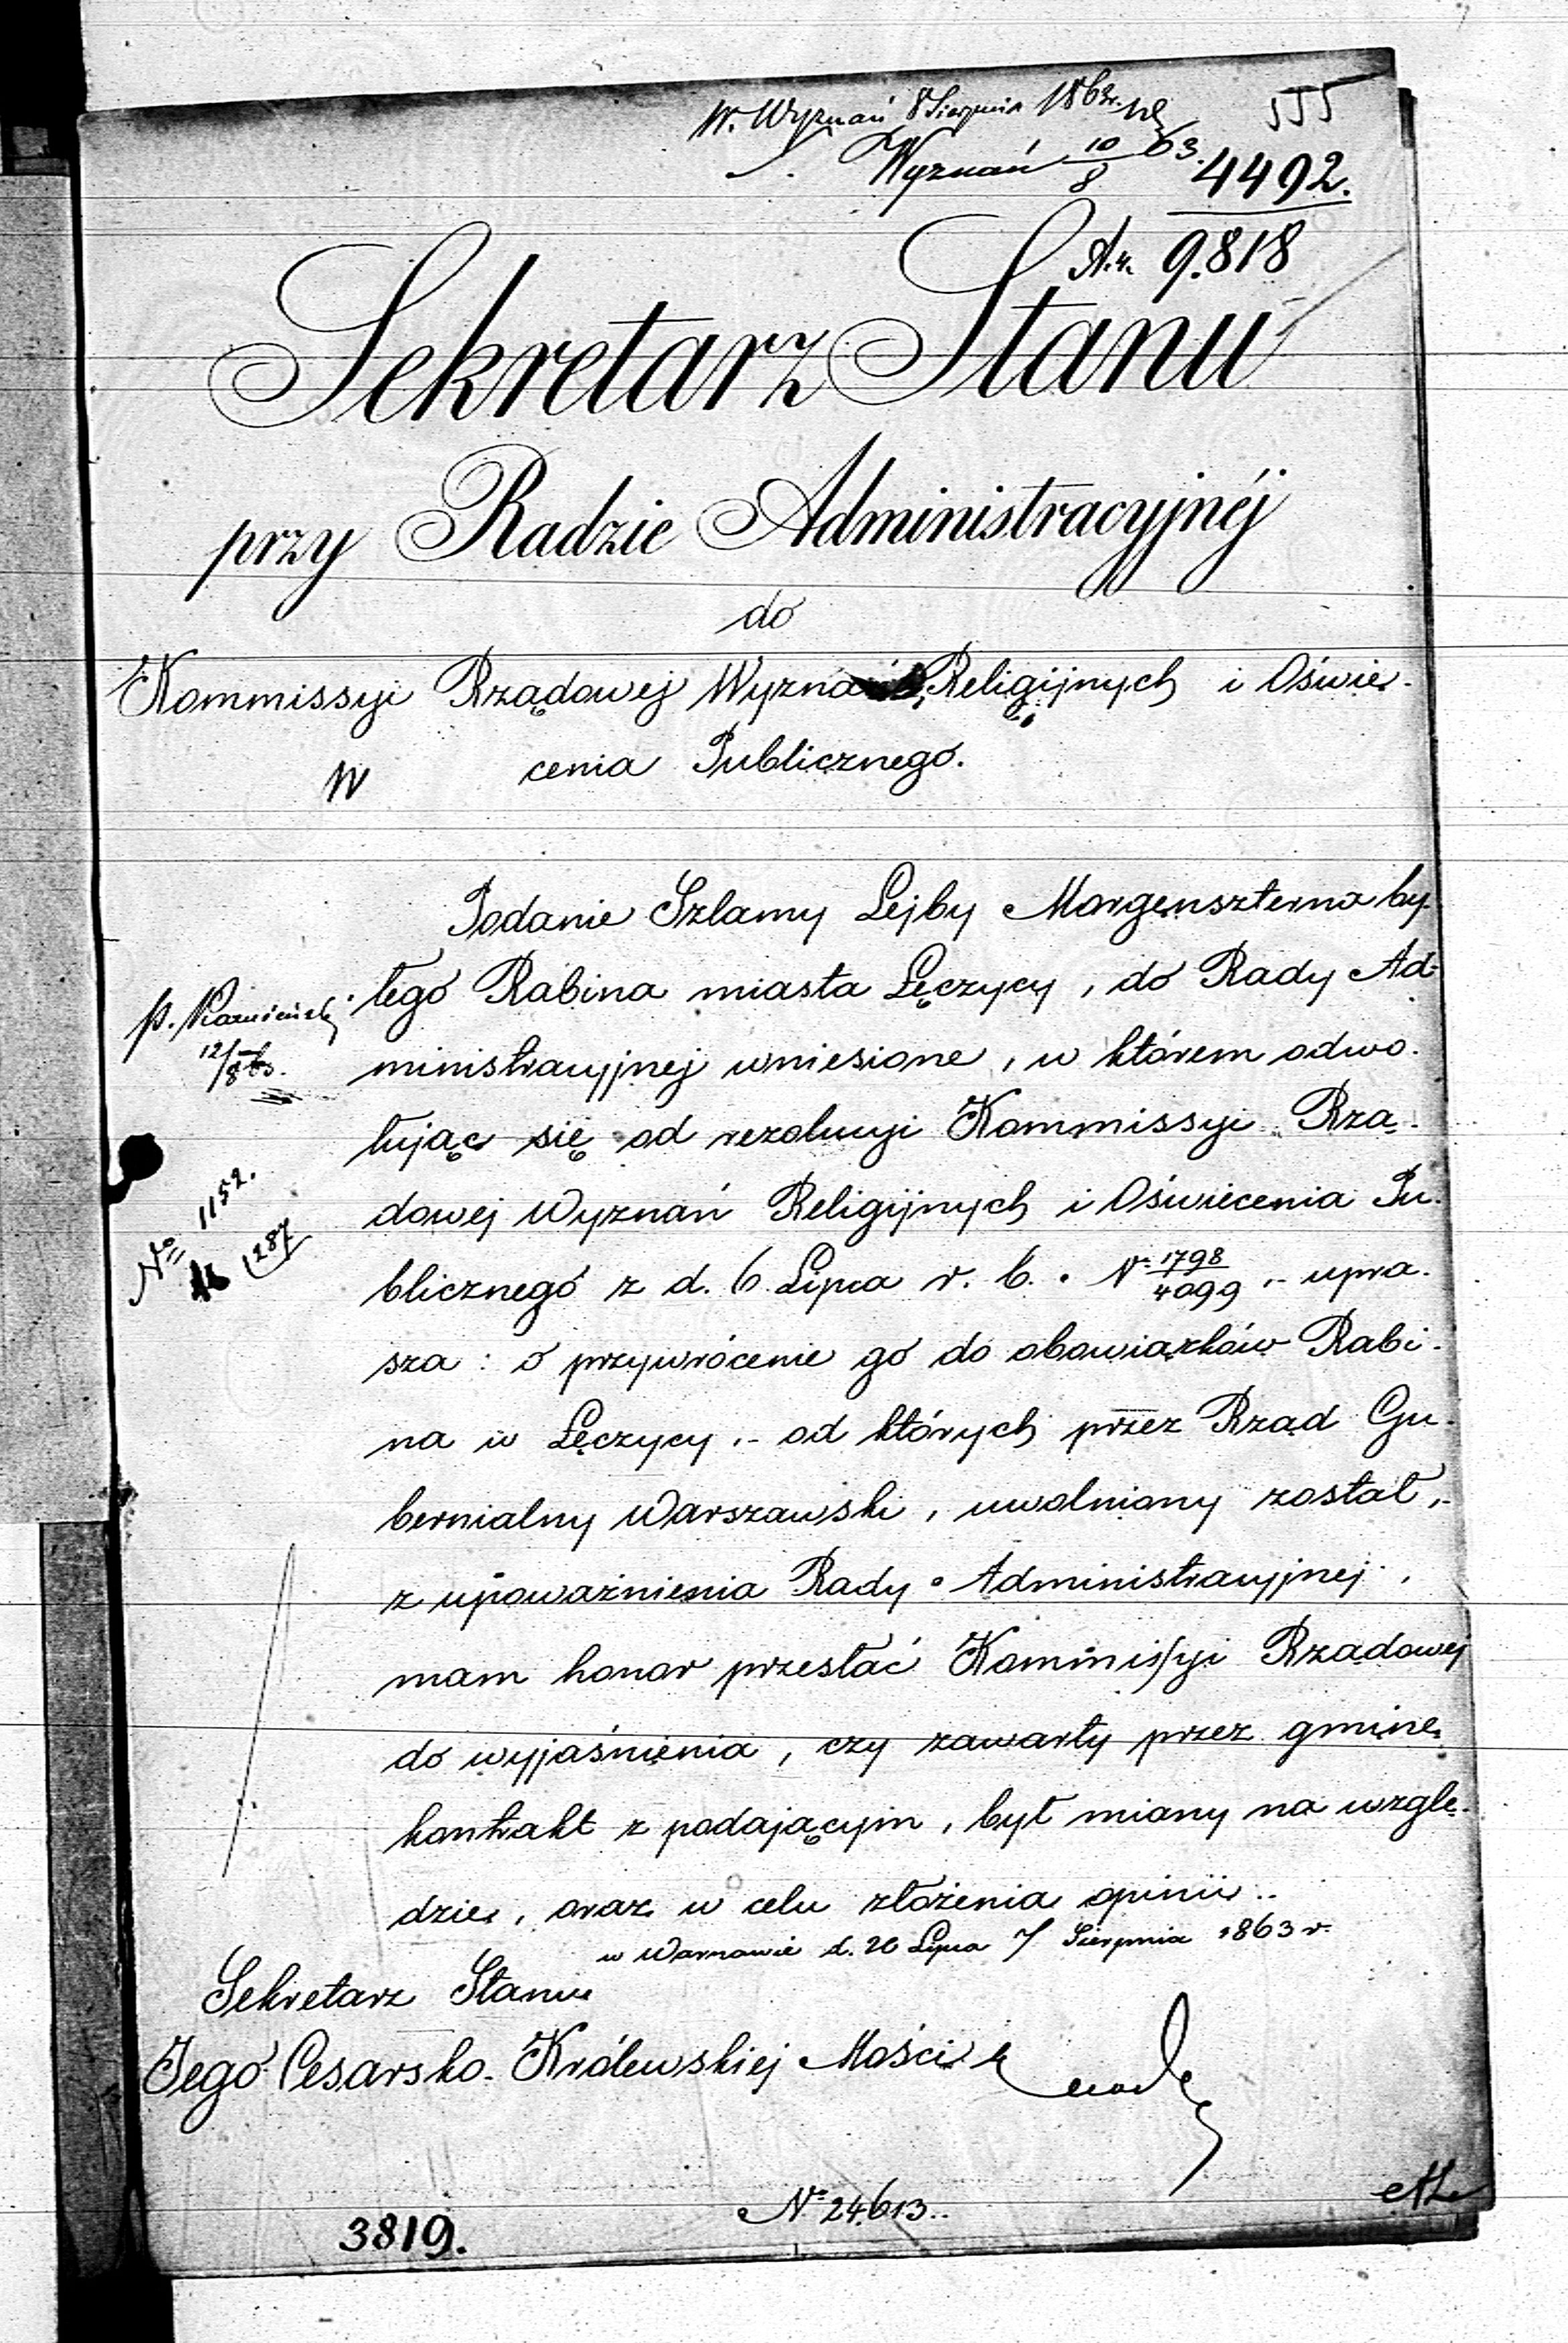 W. Wyznań 8 Sierpnia 1863r.
555
Wyznań 10/8 63.
4492.
A.n. 9.818
Sekretarz Stanu
przy Radzie Administracyjnéj
do
Kommissyi Rządowej Wyznań Religijnych i Oświe-
cenia Publicznego.
W
Podanie Szlamy Lejby Morgenszterna by-
łego Rabina miasta Łęczycy, do Rady Ad-
ministracyjnej wniesione, w którem odwo-
łując się od rezolucyi Kommissyi Rzą-
dowej Wyznań Religijnych i Oświecenia Pu-
blicznego z d. 6 Lipca r. b. N: 1798/4099 .- upra-
sza: o przywrócenie go do obowiązków Rabi-
na w Łęczycy .- od których przez Rząd Gu-
bernialny Warszawski, uwolniony został,-
z upoważnienia Rady Administracyjnej,
mam honor przesłać Kommissyi Rządowej
do wyjaśnienia, czy zawarty przez gminę
kontrakt z podającym, był miany na wzglę-
dzie, oraz w celu złożenia opinii..
w Warszawie d. 26 Lipca 7 Sierpnia 1863 r.
p.
12/8 63.
No 1152.
287
Sekretarz Stanu
Jego Cesarsko-Królewskiej Mości
No 24613..
3819.